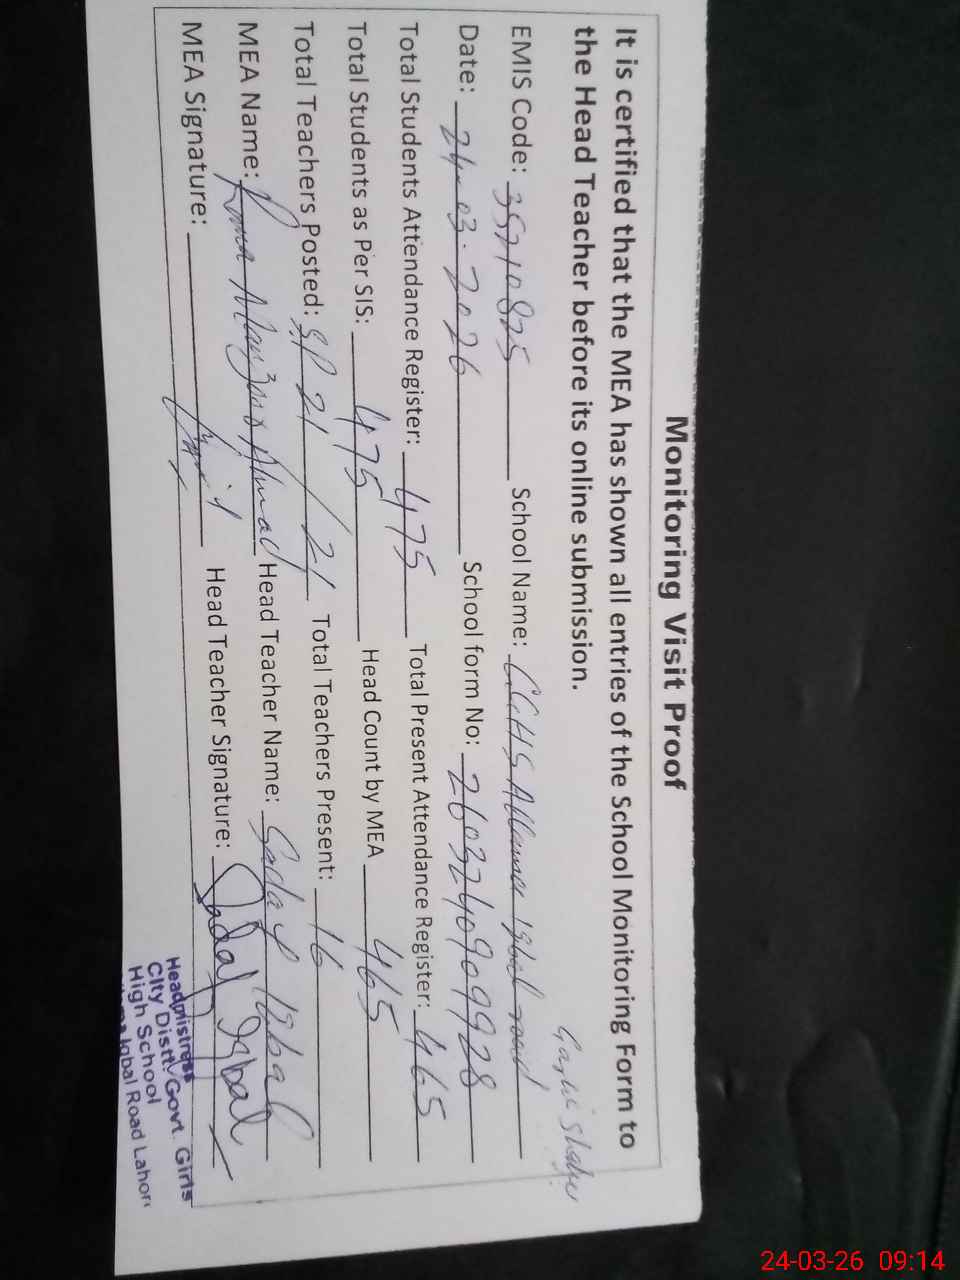 Monitoring Visit Proof
It is certified that the MEA has shown all entries of the School Monitoring Form to
the Head Teacher before its online submission.
Garhi Shahu
EMIS Code: 35210825 School Name: CGHS Allama Iqbal road
Date: 24-03-2026 School form No: 2603240909928
Total Students Attendance Register: 475 Total Present Attendance Register: 465
Total Students as Per SIS: 475 Head Count by MEA 465
Total Teachers Posted: 21 / 21 Total Teachers Present: 16
MEA Name: Rana Ahmad Head Teacher Name: Sadaf Iqbal
MEA Signature: Head Teacher Signature: Sadaf Iqbal
Headmistress
City Distt. Govt. Girls
High School
Iqbal Road Lahore
24-03-26 09:14